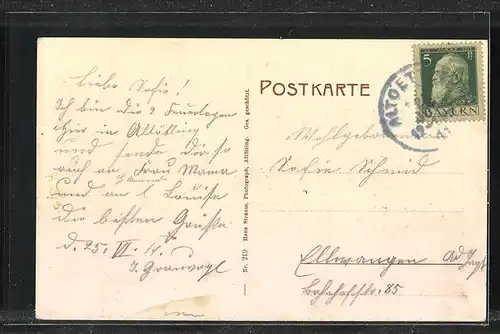 Liebe Sofie!
Ich bin die 2 Feiertagen
hier in Altötting
und sende dir so
auch an Frau Mama
und an l. Louise
die besten Grüße
d. 25. VI. 11.
POSTKARTE
Wohlgeboren
Sofie Schmid
Ellwangen a/d Jagst
Bahnhofstr. 85
5
BAYERN
ALTOET
Nr. 219 Hans Strauss, Photograph, Altötting. Ges. geschützt.